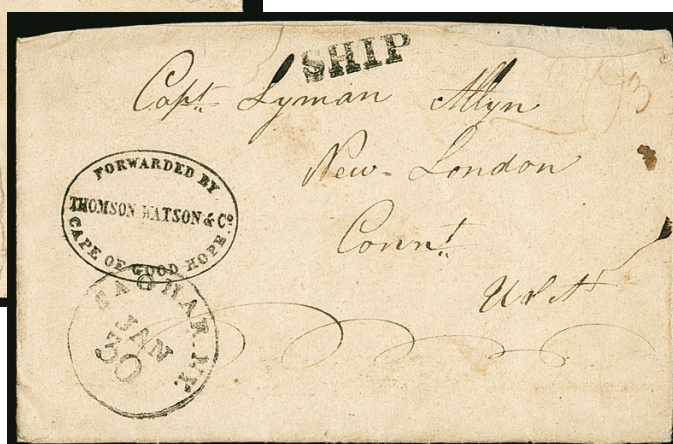 SHIP
Capt. Lyman Allyn
New-London
Connt.
U S A
FORWARDED BY
THOMSON WATSON & Co.
CAPE OF GOOD HOPE.
SAG HAR. N.Y.
JAN
30